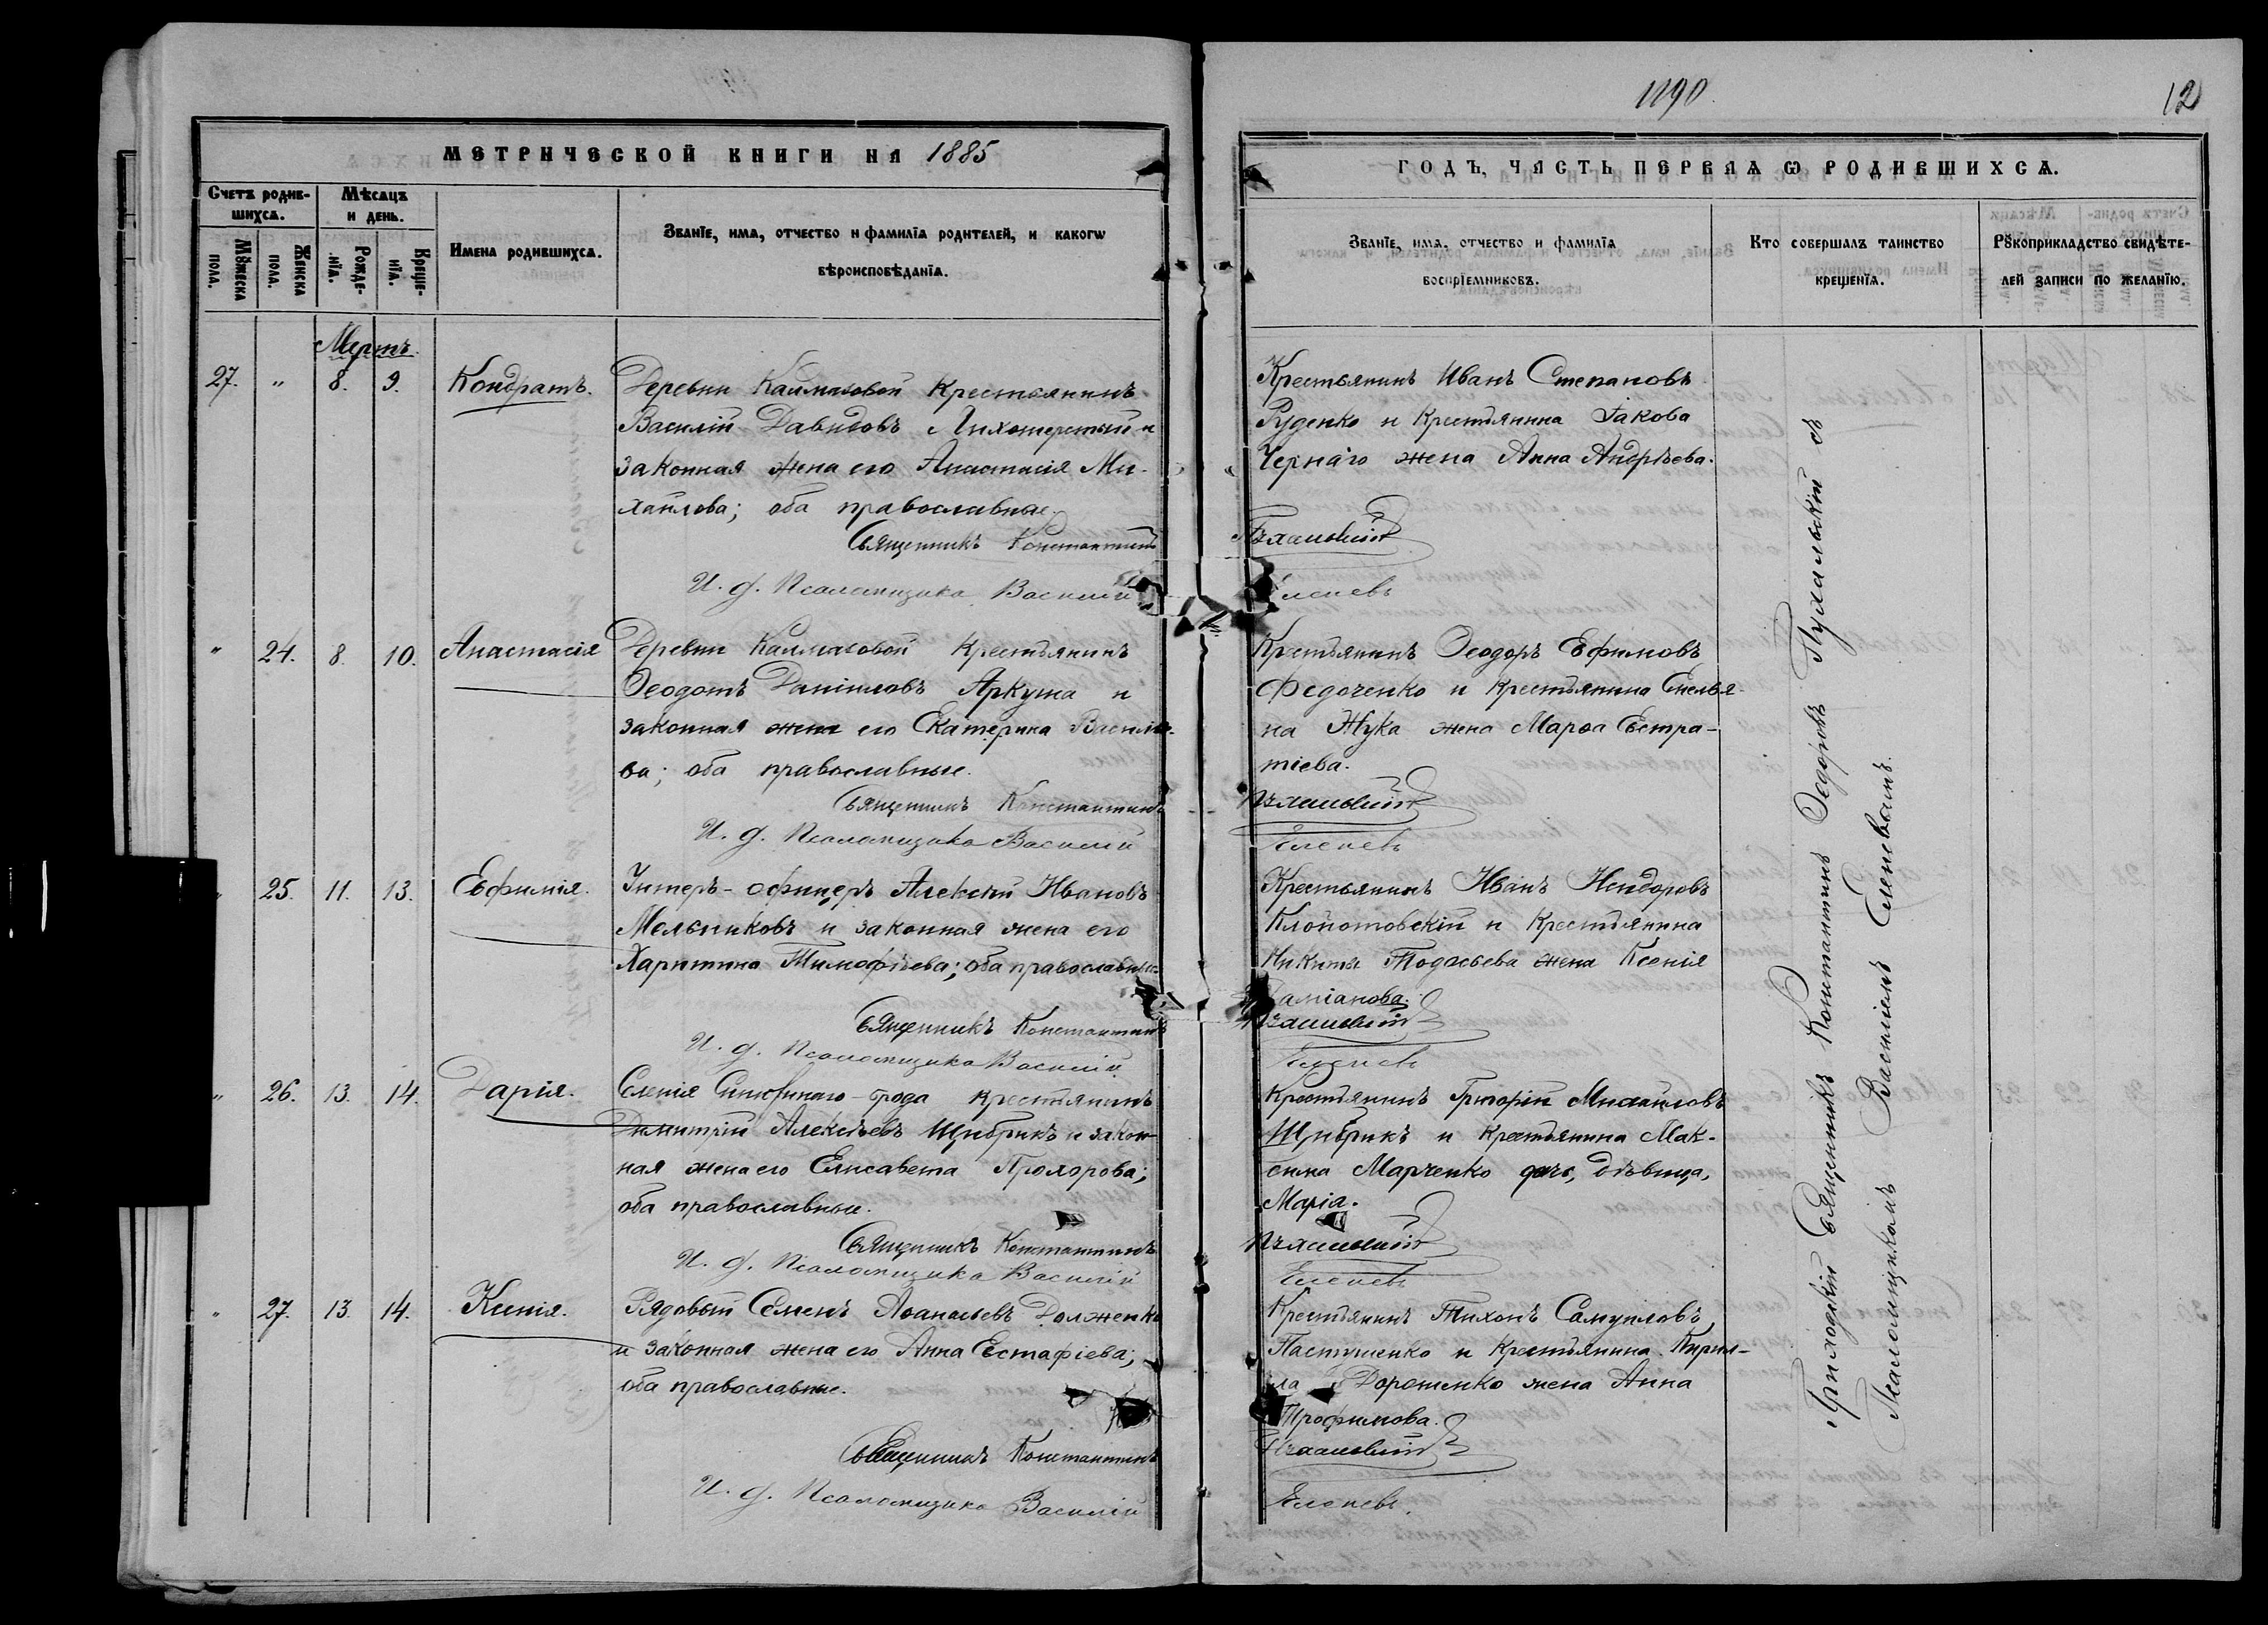 1890.
12
МЕТРИЧЕСКОЙ КНИГИ НА 1885
ГОДЪ, ЧАСТЬ ПЕРВАѦ Ѡ РОДИВШИХСѦ.
Счетъ родив-
шихсѧ.
Мꙋжеска
пола.
Женска
пола.
Мѣсѧцъ
и день.
Рожде-
нїѧ.
Креще-
нїѧ.
Имена родившихсѧ.
Званїе, имѧ, отчество и фамилїѧ родителей, и какогѡ
вѣроисповѣданїѧ.
Званїе, имѧ, отчество и фамилїѧ
воспрїемниковъ.
Кто совершалъ таинство
крещенїѧ.
Рꙋкоприкладство свидѣте-
лей записи по желанїю.
Мартъ.
27. " 8. 9. Кондратъ.
Деревни Каймаковой Крестьянинъ
Василій Давидовъ Лихошерстый и
законная жена его Анастасія Ми-
хайлова; оба православные.
Священникъ Константинъ
И. д. Псаломщика Василій
Крестьянинъ Иванъ Степановъ
Руденко и Крестьянина Іакова
Чернаго жена Анна Андрѣева.
Еленевъ
" 24. 8. 10. Анастасія
Деревни Каймаковой Крестьянинъ
Ѳеодотъ Даніиловъ Аркуша и
законная жена его Екатерина Василье-
ва; оба православные.
Священникъ Константинъ
И. д. Псаломщика Василій
Крестьянинъ Ѳеодоръ Ефимовъ
Федоченко и Крестьянина Емелья-
на Жука жена Марѳа Евстра-
тіева.
Еленевъ
" 25. 11. 13. Евфимія.
Унтеръ-офицеръ Алексѣй Ивановъ
Мельниковъ и законная жена его
Харитина Тимофѣева; оба православные.
Священникъ Константинъ
И. д. Псаломщика Василій
Крестьянинъ Иванъ Исидоровъ
Клопотовскій и Крестьянина
Никиты жена Ксенія
Даміанова.
Еленевъ
" 26. 13. 14. Дарія.
Селенія крестьянинъ
Димитрій Алексѣевъ Щибрикъ и закон-
ная жена его Елисавета Прохорова;
оба православные.
Священникъ Константинъ
И. д. Псаломщика Василій
Крестьянинъ Григорій Михайловъ
Щибрикъ и Крестьянина Мак-
сима Марченко дочь, дѣвица,
Марія.
Еленевъ
" 27. 13. 14. Ксенія.
Рядовый Семенъ Аѳанасьевъ Долженко
и законная жена его Анна Евстафіева;
оба православные.
Священникъ Константинъ
И. д. Псаломщика Василій
Крестьянинъ Тихонъ Самуиловъ
Пастушенко и Крестьянина Кирил-
ла Дорошенко жена Анна
Трофимова.
Еленевъ.
Приходскій Священникъ Константинъ Ѳеодоровъ Пухальскій съ
Псаломщикомъ Василіемъ Еленевымъ.